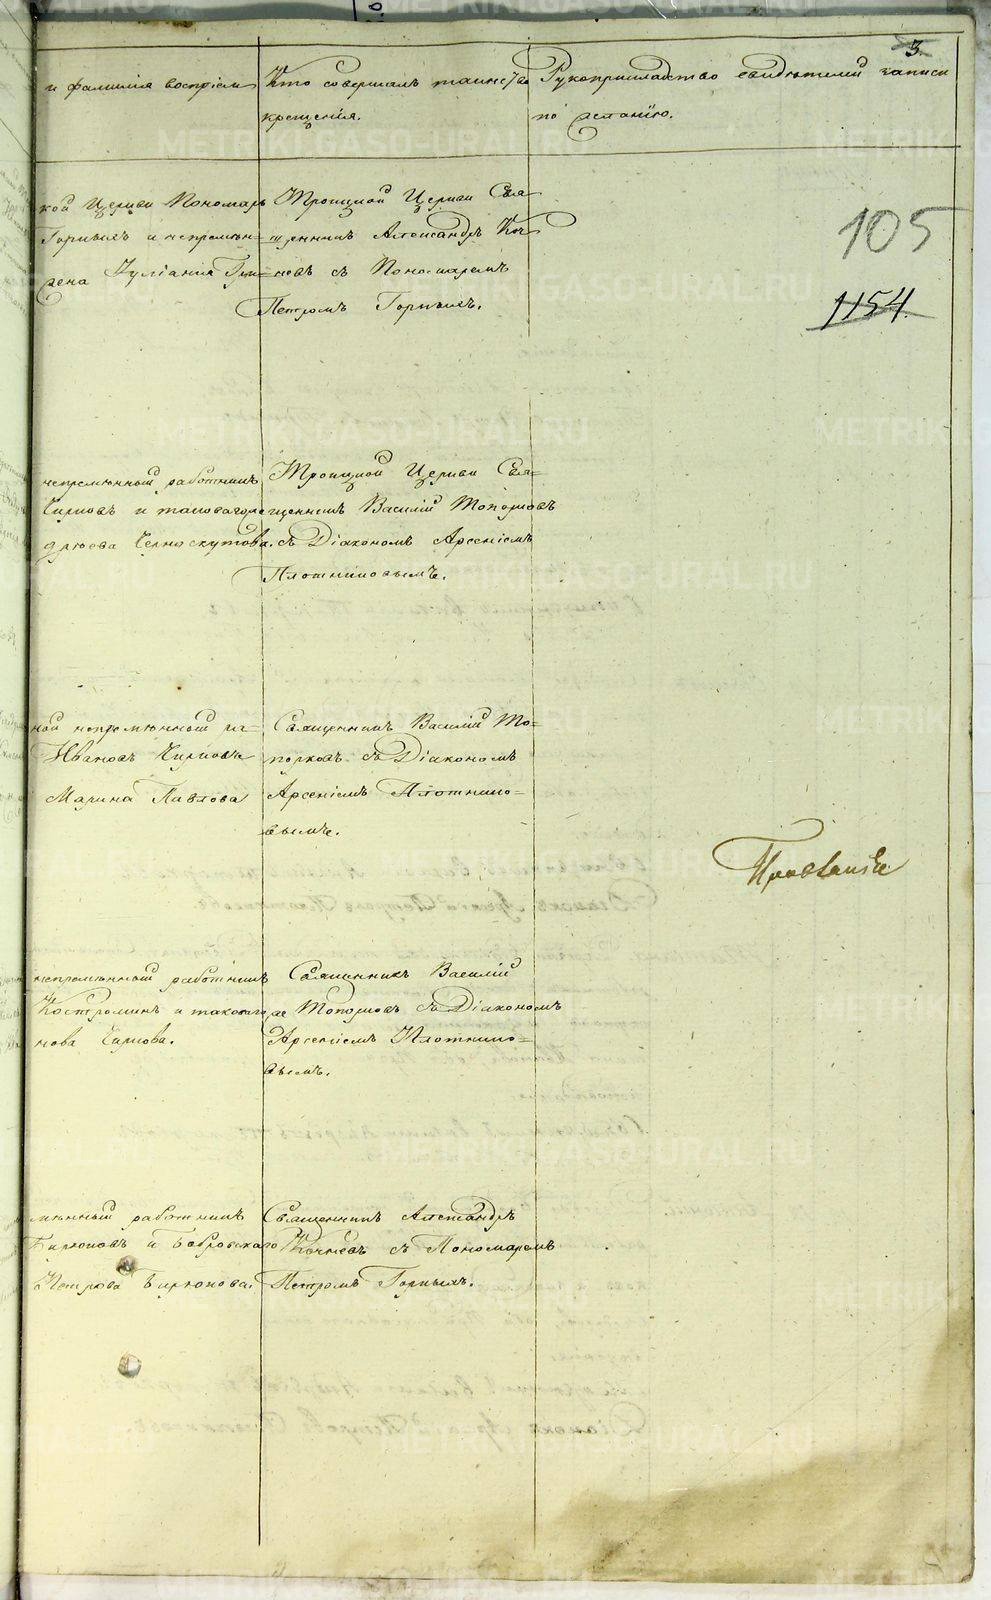 3.
и фамилія воспріем
Кто совершалъ таинство
крещенія.
Рукоприкладство свидѣтелей записи
по желанію.
105
1154.
кой Церкви Пономарь
Горныхъ и непремѣн-
жена Іуліанія
Троицкой Церкви Свя-
щенникъ Александръ Коч-
невъ съ Пономаремъ
Петромъ Горныхъ.
непремѣнный работникъ
и таковагоже
Черноскутова.
Троицкой Церкви Свя-
щенникъ Василій Топорковъ
съ Діакономъ Арсеніемъ
Плотниковымъ.
ной непремѣнный
Ивановъ
Марина Павлова
Священникъ Василій То-
порковъ съ Діакономъ
Арсеніемъ Плотнико-
вымъ.
непремѣнный работникъ
Костроминъ и таковагоже
нова
Священникъ Василій
Топорковъ съ Діакономъ
Арсеніемъ Плотнико-
вымъ.
мѣнный работникъ
Бирюковъ и Бобровскаго
Бирюкова.
Священникъ Александръ
Кочневъ съ Пономаремъ
Петромъ Горныхъ.
METRIKI.GASO-URAL.RU